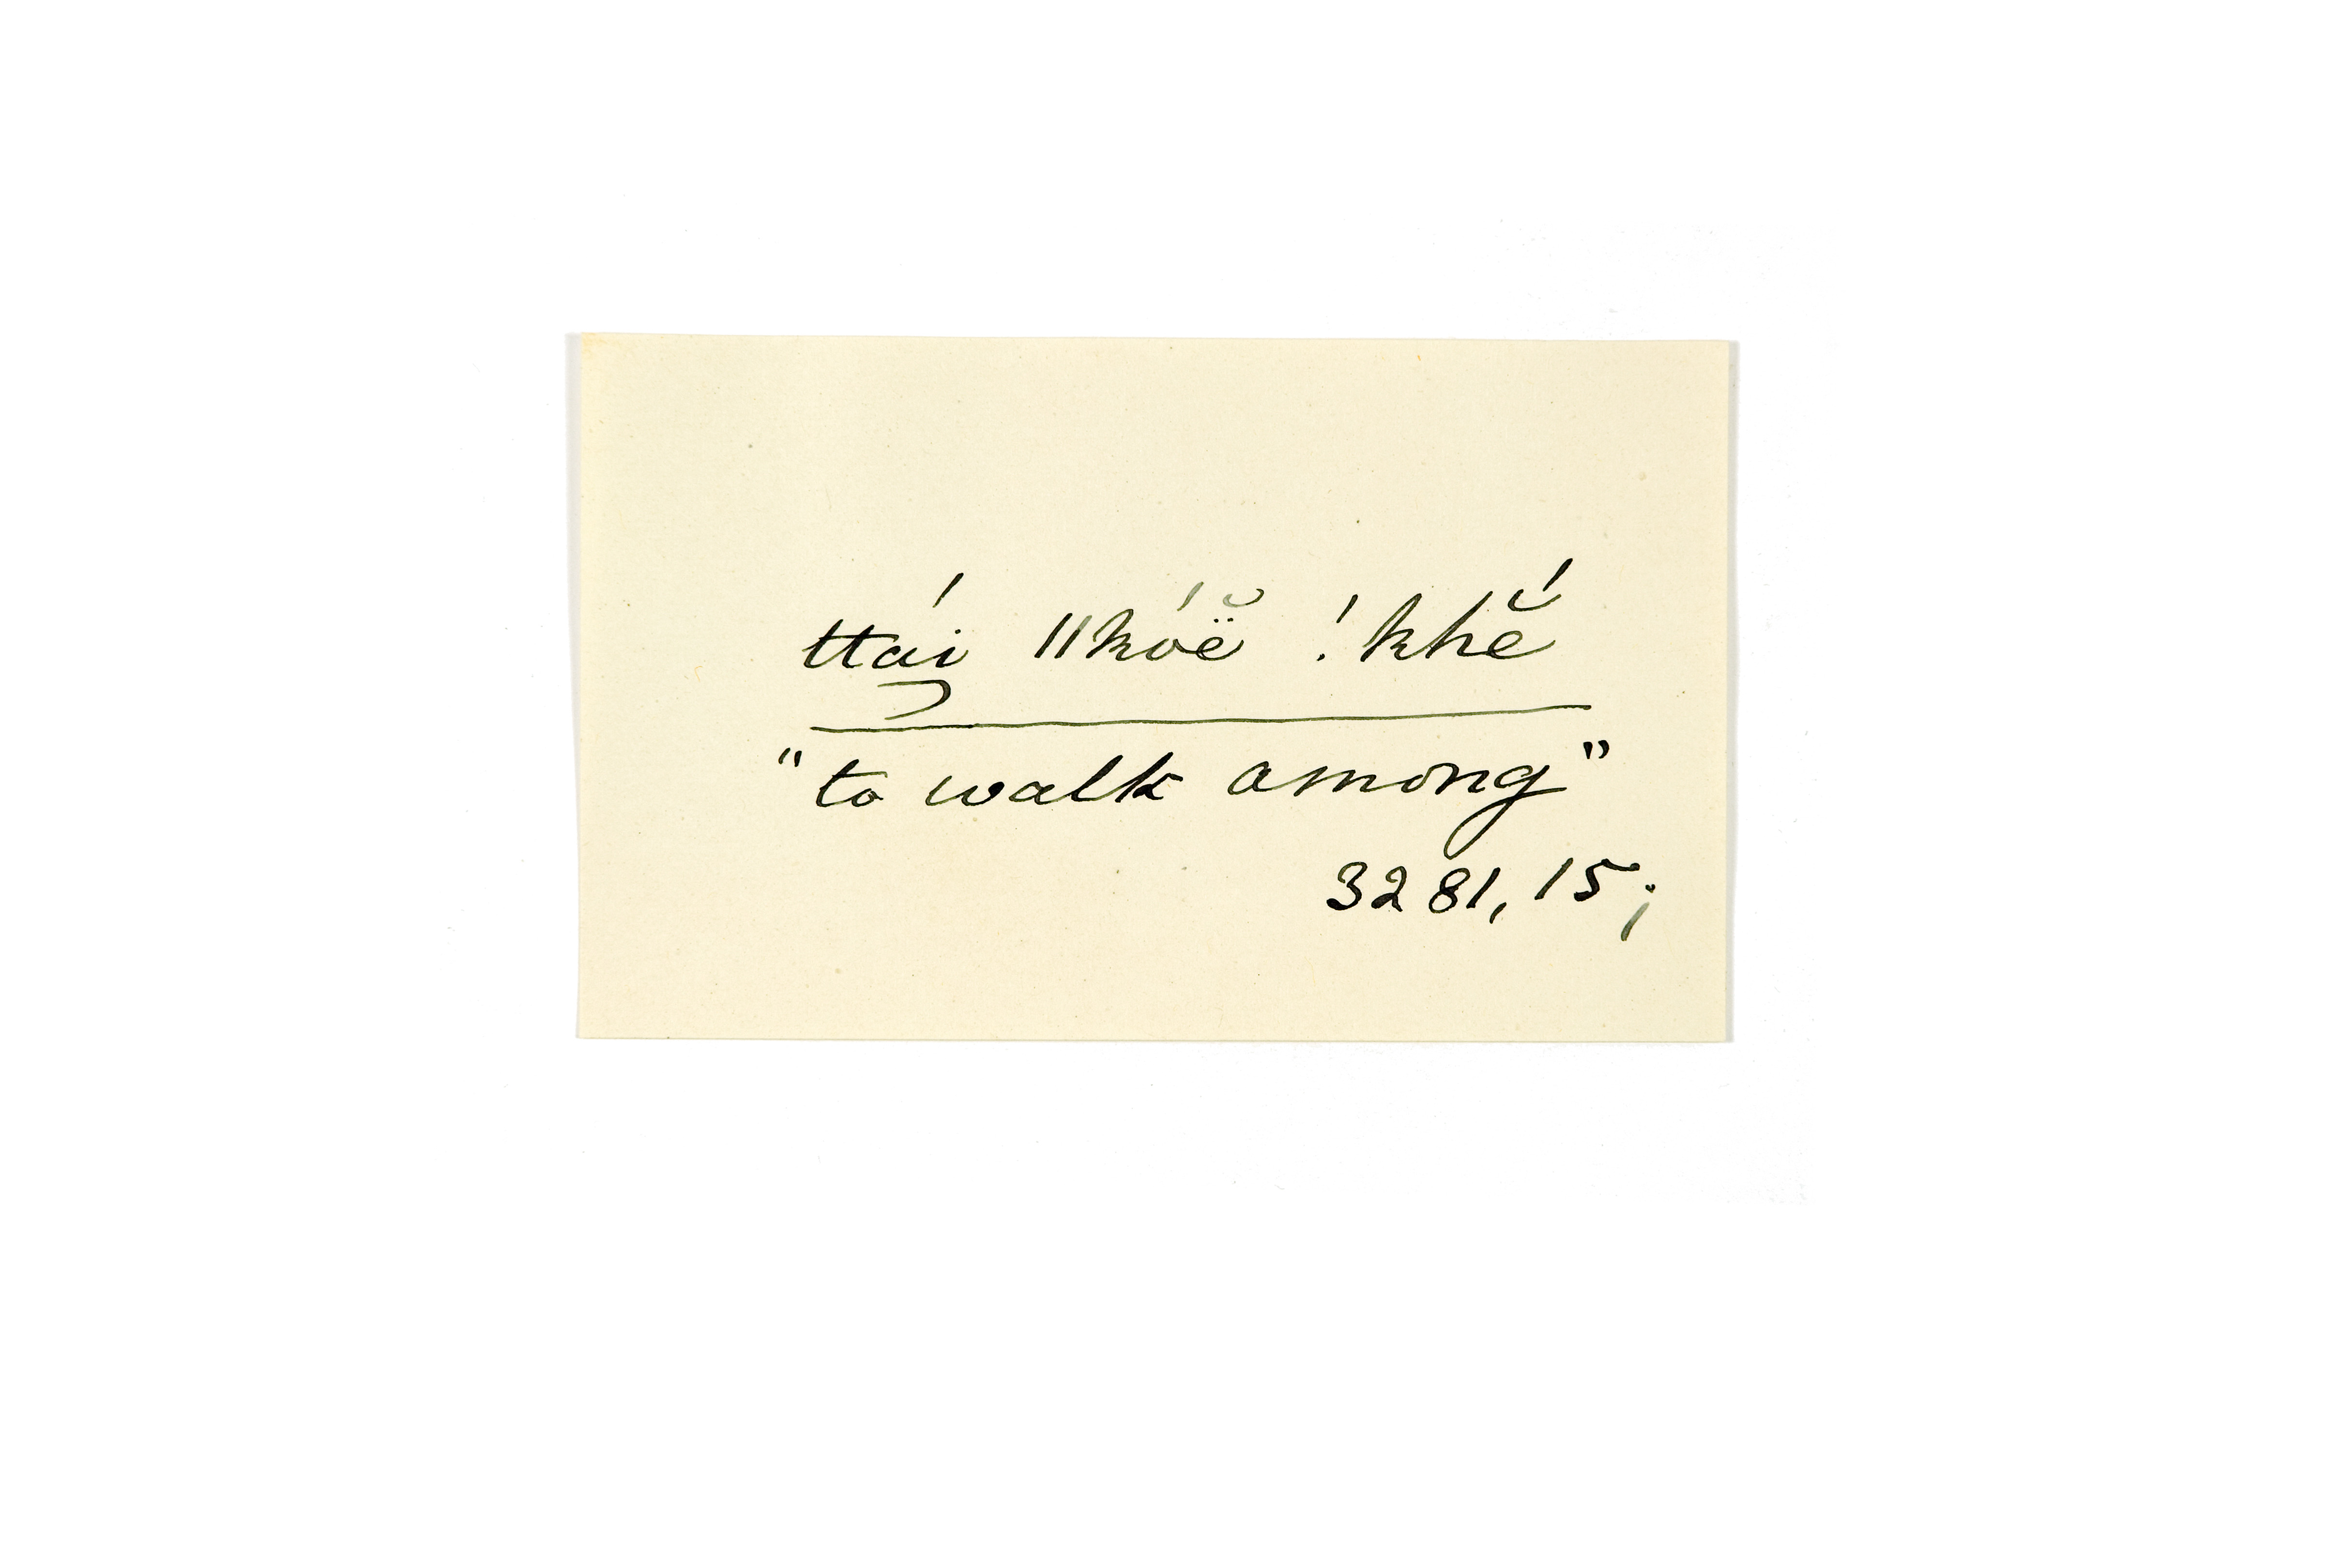 ttái ǁkóë̆ !khĕ́
"to walk among"
3281, 15;